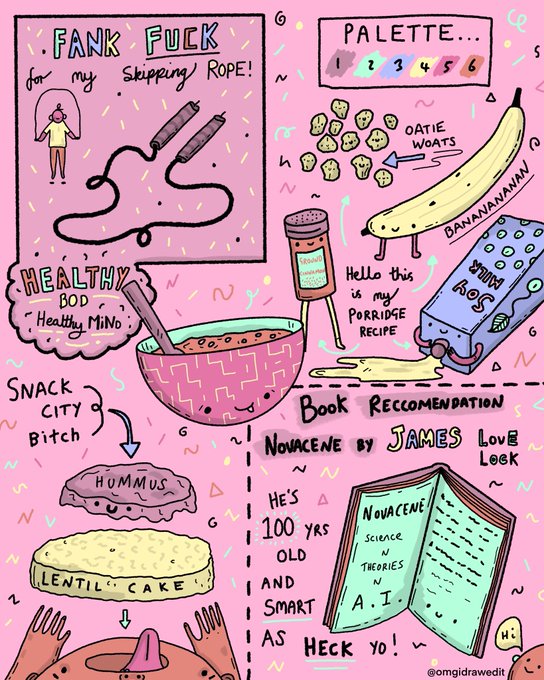 FANK FUCK
for my skipping ROPE!
PALETTE...
1 2 3 4 5 6
OATIE
WOATS
BANANANANAN
GROUND
CINNAMON
SOY
MILK
Hello this
is my
PORRIDGE
RECIPE
HEALTHY
BOD
Healthy MiND
SNACK
CITY
Bitch
HUMMUS
LENTIL CAKE
BOOK RECCOMENDATION
NOVACENE BY JAMES LOVE
LOCK
HE'S
100 YRS
OLD
AND
SMART
AS HECK YO!
NOVACENE
SCIENCE
N
THEORIES
N
A.I.
Hi
@omgidrawedit